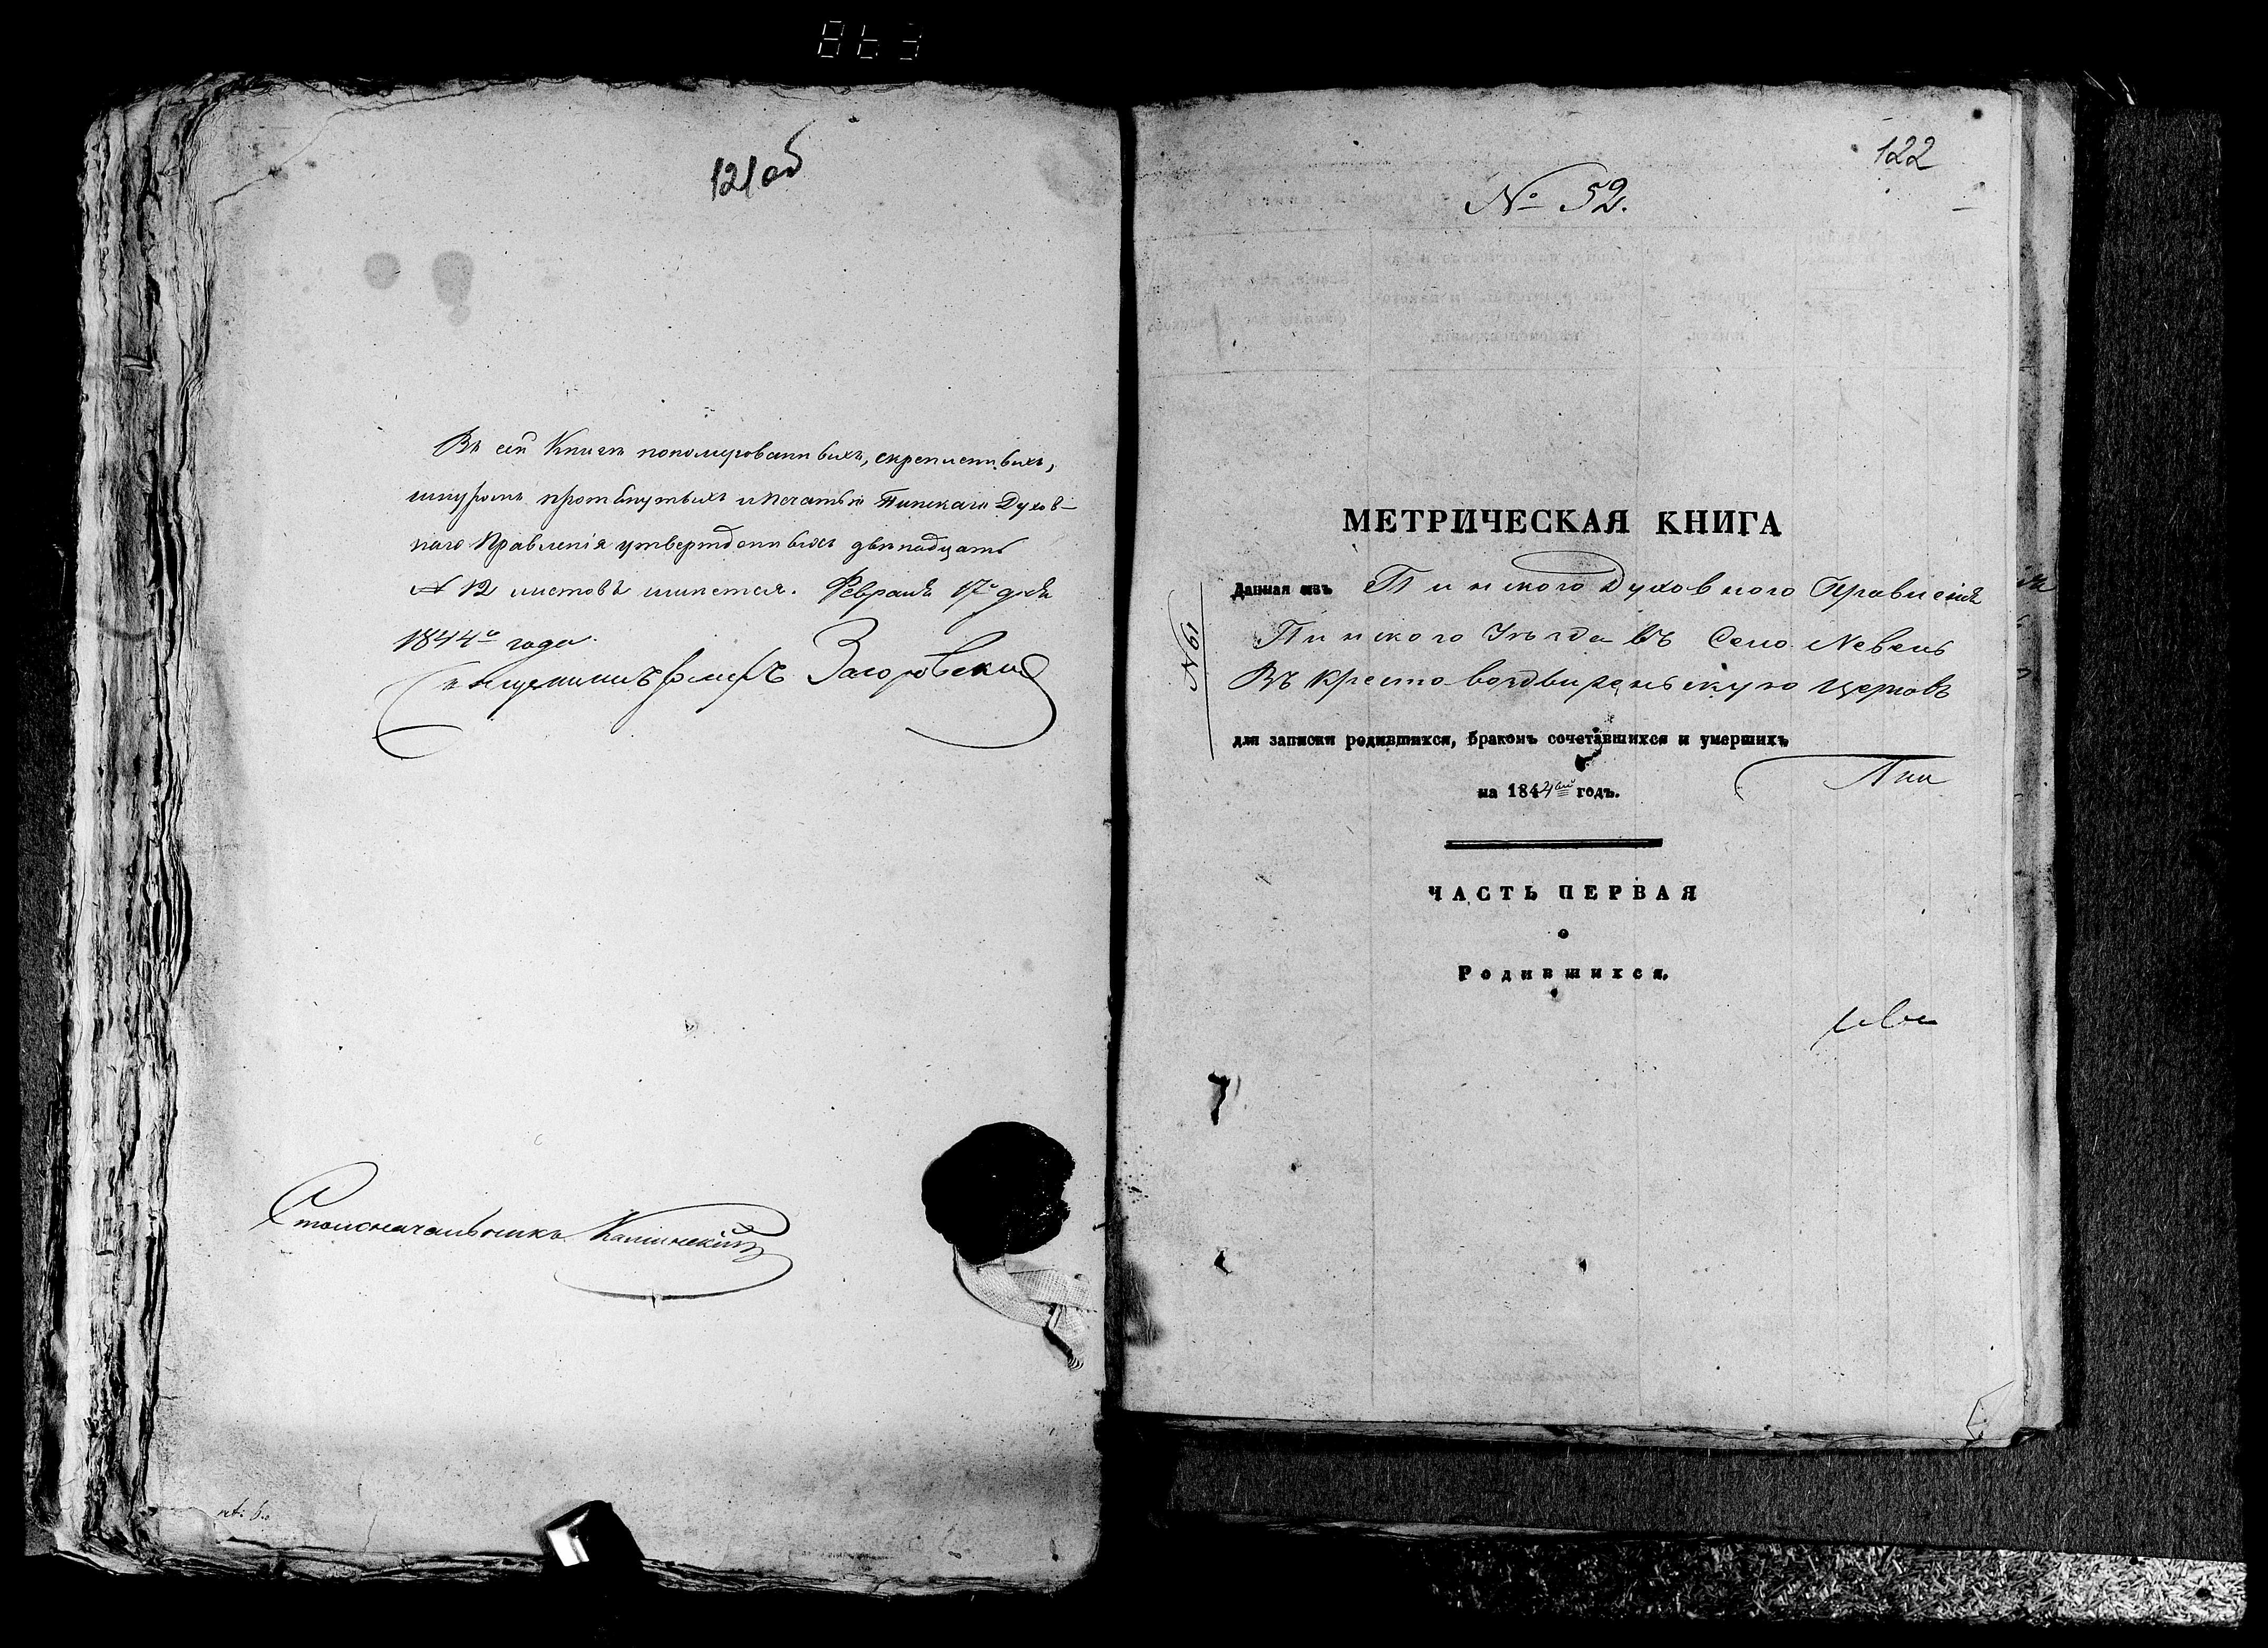 863
121об
Въ сей Книге пономерованныхъ, скрепленныхъ,
шнуромъ протянутыхъ и печатью Пинскаго Духов-
наго Правленія утвержденныхъ двенадцать
№ 12 листовъ имеется. Февраля 17 дня
1844го года.
Священникъ Загоровский
Столоначальникъ Калинскій
122
№ 52.
МЕТРИЧЕСКАЯ КНИГА
Данная изъ Пинского Духовного Правленія
№ 61
Пинского Уезда въ Село Невель
Въ Крестовоздвиженьскую Церковь
для записки родившихся, бракомъ сочетавшихся и умершихъ
на 1844ый годъ.
ЧАСТЬ ПЕРВАЯ
о
Родившихся.